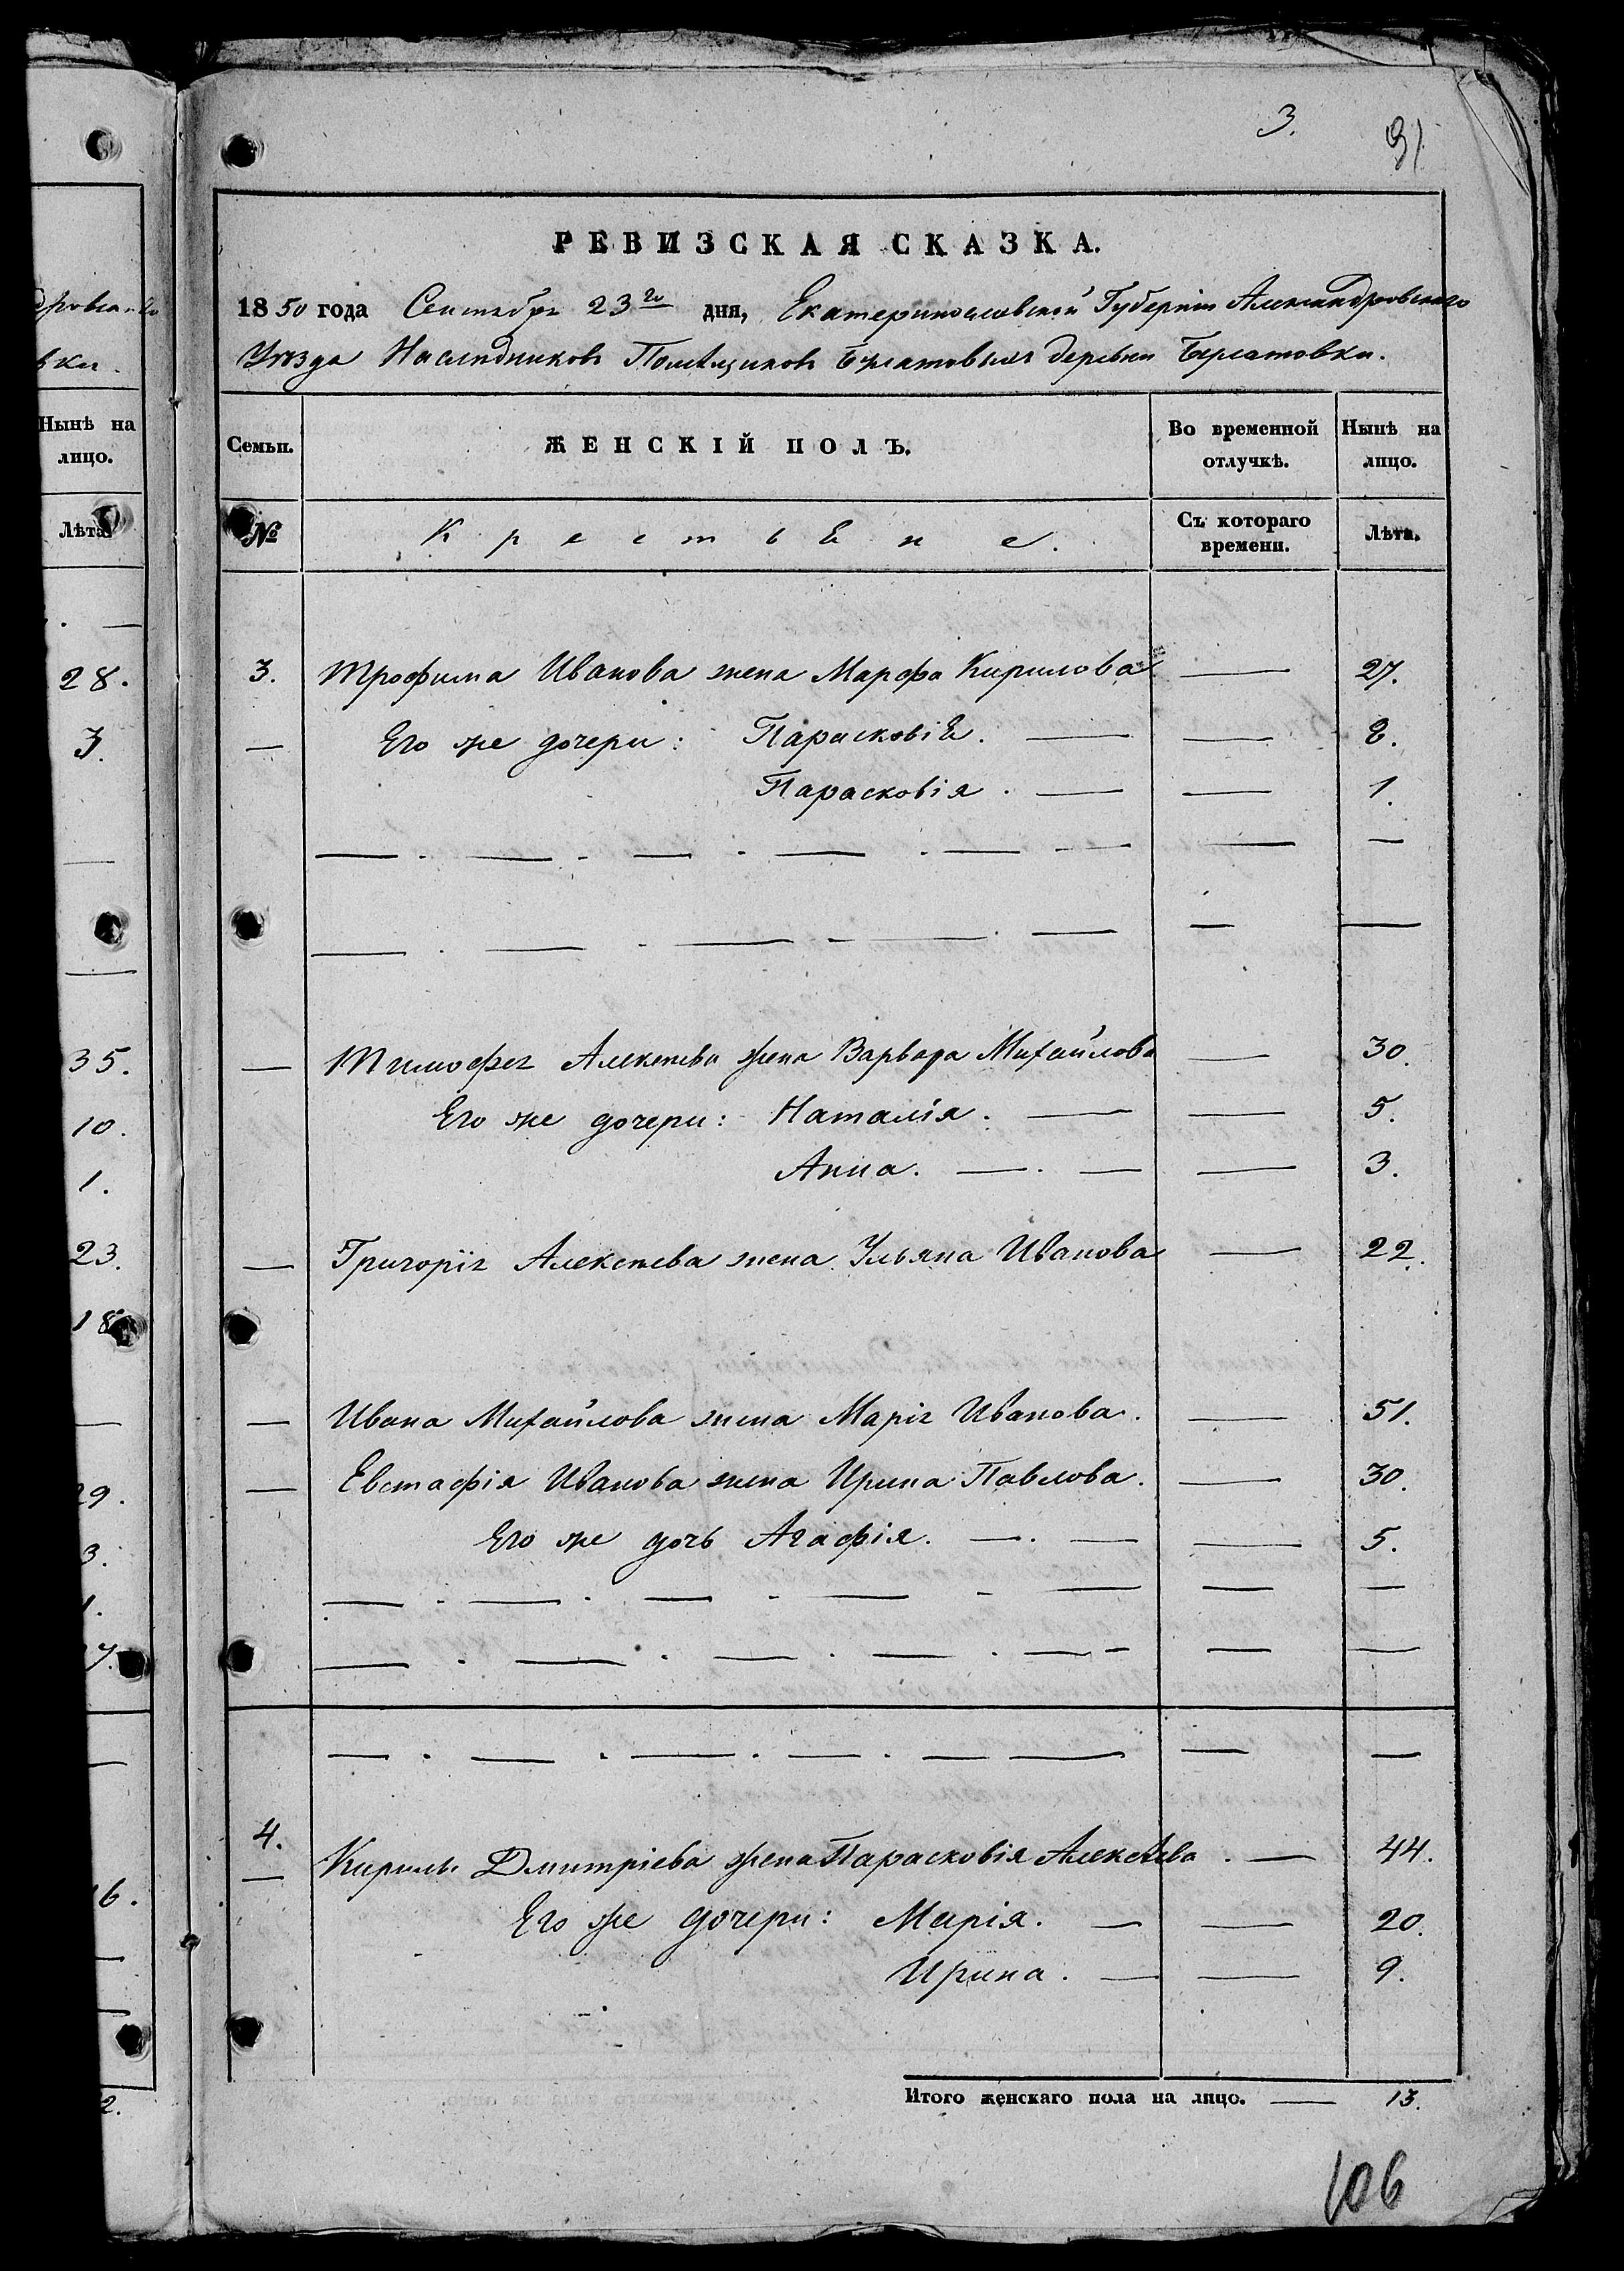 3. 91
РЕВИЗСКАЯ СКАЗКА.
1850 года Сентября 23го дня, Екатеринославской Губерніи Александровскаго
Уѣзда Наслѣдниковъ Помѣщиковъ деревни
Семьи. ЖЕНСКІЙ ПОЛЪ. Во временной отлучкѣ. Нынѣ на лицо.
№ Крестьяне. Съ котораго времени. Лѣта.
3. Трофима Иванова жена Марфа Кирилова — 27.
— Его же дочери: Парасковія. — — 8.
Парасковія. — — 1.
— Тимофея Алексѣева жена Варвара Михайлова — 30.
Его же дочери: Наталія. — — 5.
Анна. — . — — 3.
— Григорія Алексѣева жена Ульяна Иванова — 22.
— Ивана Михайлова жена Марія Иванова. — 51.
— Евстафія Иванова жена Ирина Павлова. — 30.
Его же дочь Агафія. — . — — 5.
4. Кирила Дмитріева жена Парасковія Алексѣева . — 44.
Его же дочери: Марія. — — 20.
Ирина. — — 9.
Итого женскаго пола на лицо. — 13.
106
Нынѣ на
лицо.
Лѣта.
28.
3.
35.
10.
1.
23.
18